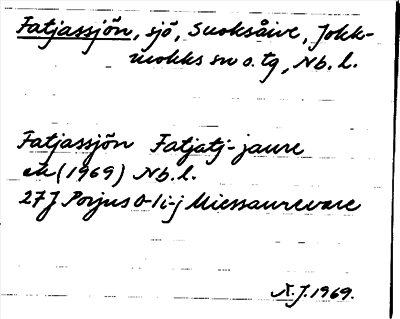 Fatjassjön, sjö, Suoksåive, Jokk-
mokks sn o. tg, Nb. l.
Fatjassjön Fatjatj-jaure
ek (1969) Nb. l.
27J Porjus 0-1 i-j Miessaurevare
N. J. 1969.